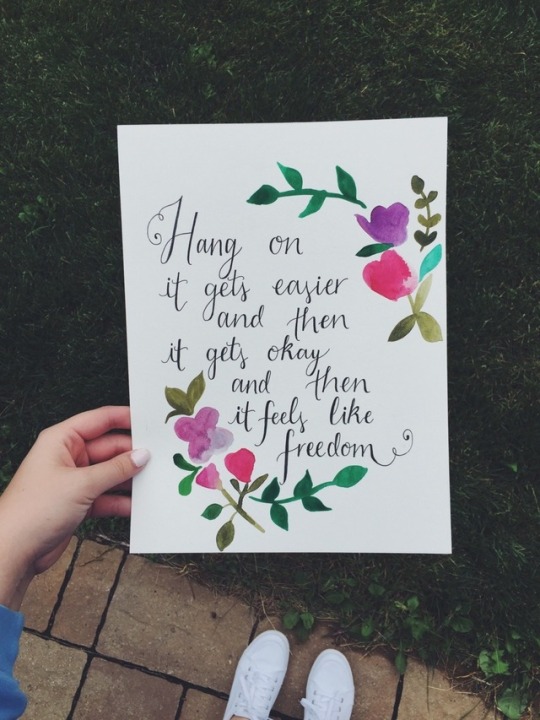 Hang on
it gets easier
and then
it gets okay
and then
it feels like
freedom